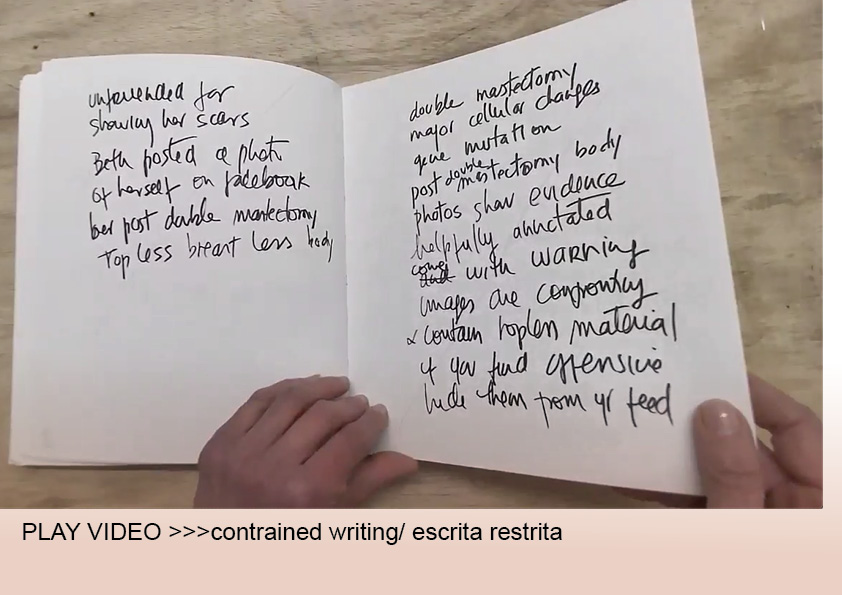 unfriended for
showing her scars
Beth posted a photo
of herself on facebook
her post double mastectomy
Topless breast less body
double mastectomy
major cellular changes
gene mutation
post double mastectomy body
photos show evidence
helpfully annotated
comes with warning
images are confronting
& contain topless material
if you find offensive
hide them from yr feed
PLAY VIDEO >>>contrained writing/ escrita restrita